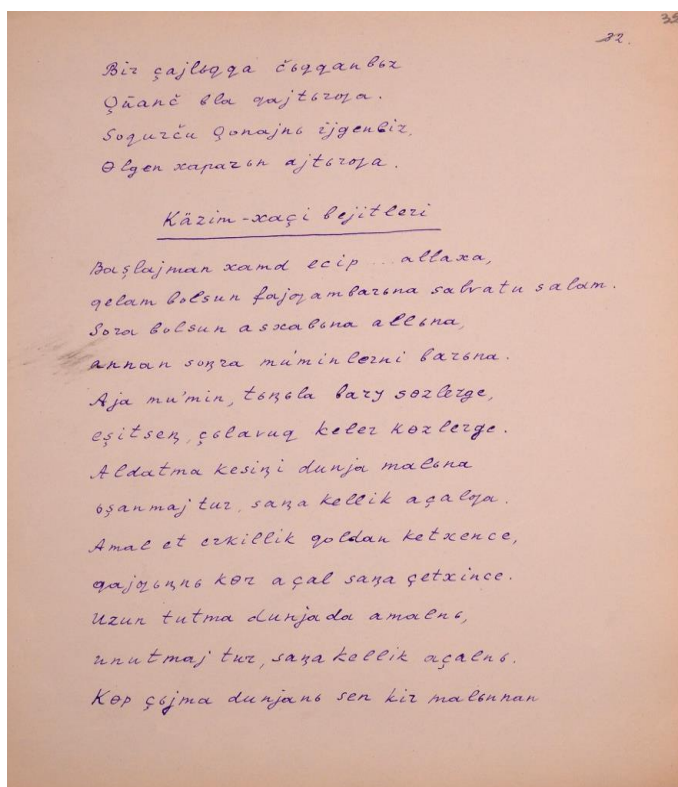 32.
Bir çajlьqqa čьqqanbьz
Çüanč bla qajtьrƣa.
Soqurču Qonajnь ijgenbiz,
Ɵlgen xaparьn ajtьrƣa.
Käzim-xaçi bejitleri
Başlajman xamd ecip ... allaxa,
qelam bolsun fajƣambarьna salvatu salam.
Sora bolsun asxabьna allьna,
annan soꞑra mu'minlerni barьna.
Aja mu'min, tьꞑьla bary sɵzlerge,
eşitseꞑ, çьlavuq keler kɵzlerge.
Aldatma kesiꞑi dunja malьna
ьşanmaj tur, saꞑa kellik açalƣa.
Amal et erkillik qoldan ketxence,
qajƣьꞑnь kɵr açal saꞑa çetxince.
Uzun tutma dunjada amalnь,
unutmaj tur, saꞑa kellik açalnь.
Kɵp çьjma dunjanь sen kir malьnnan